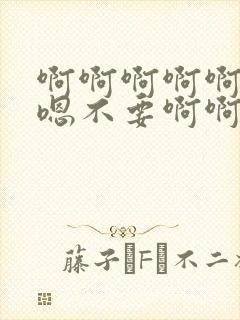 啊啊啊啊啊
嗯不要啊啊
藤子・F・不二